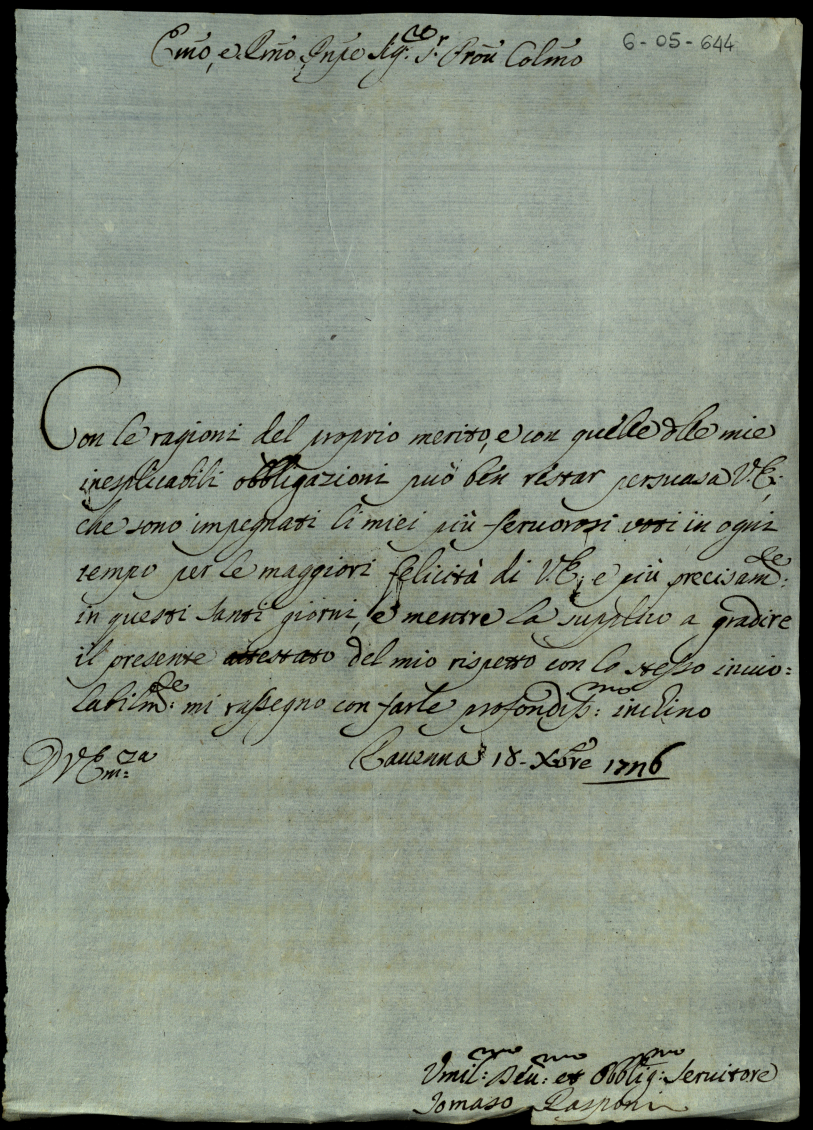 Emo, e Rmo Pnpe Sig.r Sr Pron Colmo
6-05-644
Con le ragioni del proprio merito, e con quelle delle mie
inesplicabili obbligazioni può ben restar persuasa V.E.
che sono impegnati li miei più fervorosi voti in ogni
tempo per le maggiori felicità di V.E., e più precisamte:
in questi Santi giorni, e mentre la supplico a gradire
il presente attestato del mio rispetto con lo stesso invio=
labilmte: mi rassegno con farle profondissmo: inchino
D V Em:za
Ravenna 18 Xbre
Umilmo: Devmo: et Obbligmo: Servitore
Tomaso Rasponi